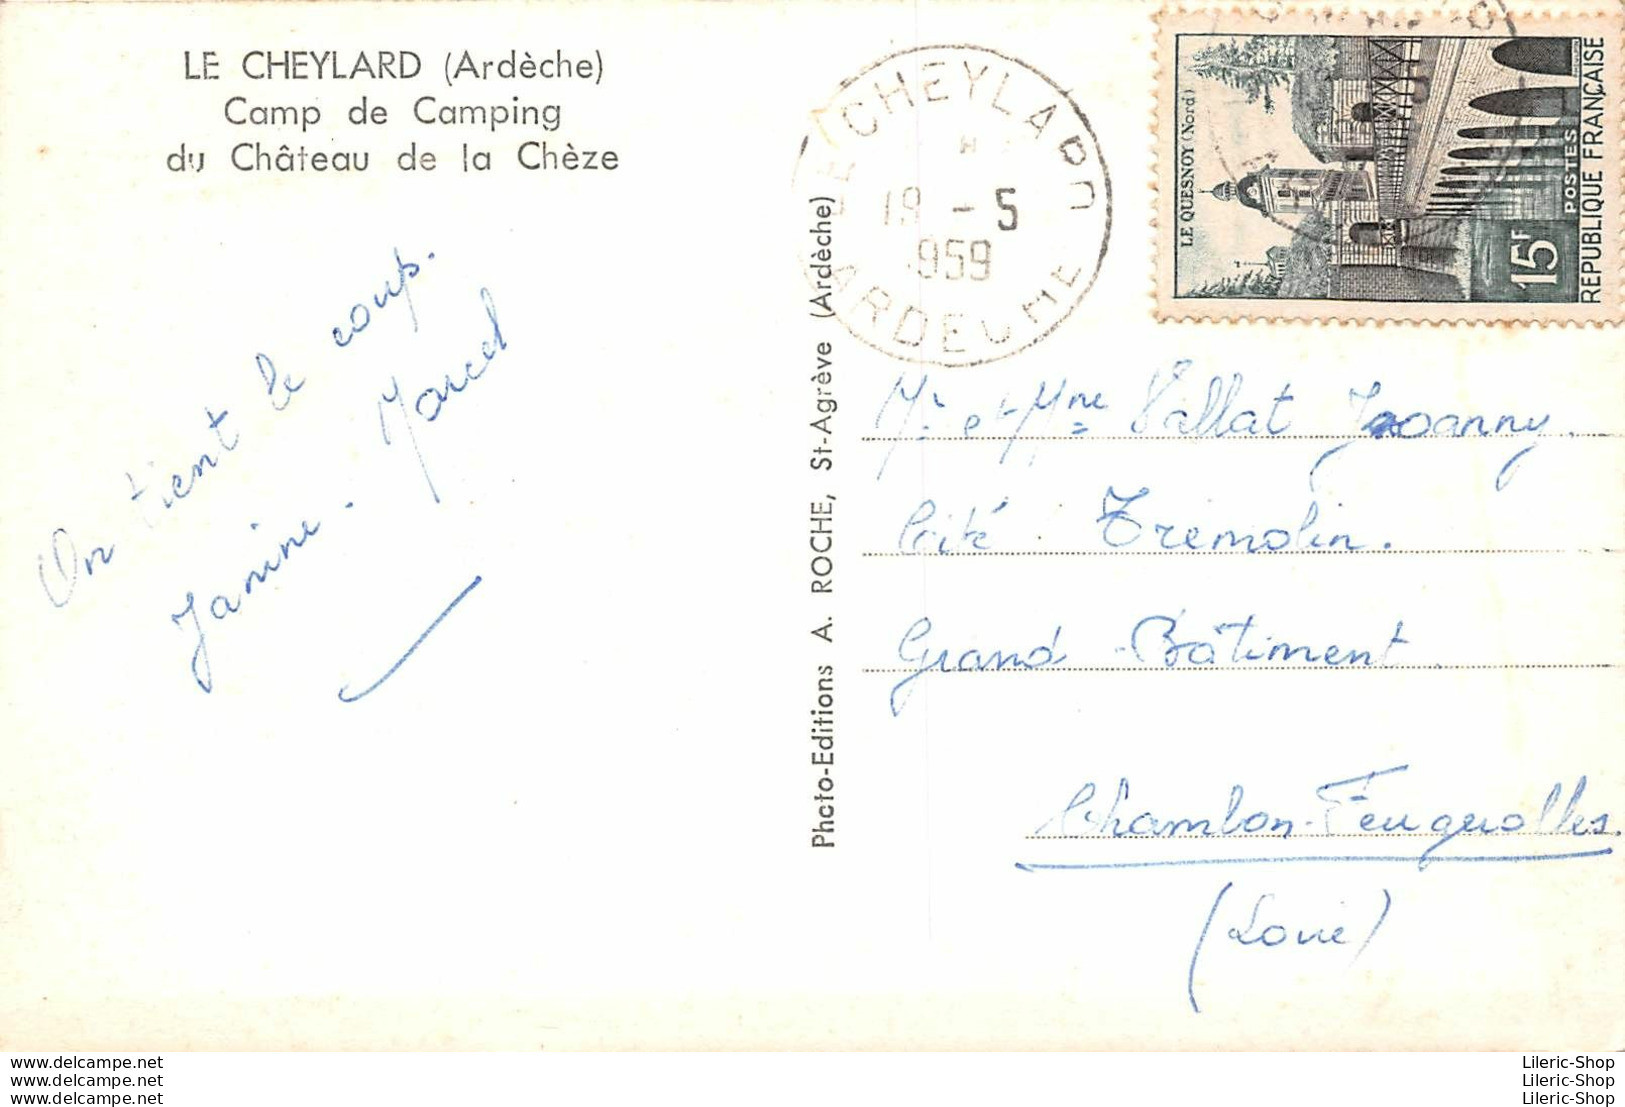 LE CHEYLARD (Ardèche)
Camp de Camping
du Château de la Chèze
On tient le coup.
Janine - Marcel
Photo-Editions A. ROCHE, St-Agrève (Ardèche)
LE CHEYLARD
18 -5
1959
ARDECHE
LE QUESNOY (Nord)
15F
POSTES
REPUBLIQUE FRANÇAISE
Mr et Mme Vallat Joanny.
Cité Trémolin.
Grand Bâtiment
Chambon-Feugerolles.
(Loire)
www.delcampe.net
www.delcampe.net
www.delcampe.net
Lileric-Shop
Lileric-Shop
Lileric-Shop